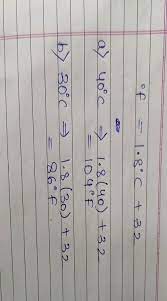 °F = 1.8°C + 32
a) 40°C ⇒ 1.8(40)+32
= 104°F
b) 30°C ⇒ 1.8(30)+32
= 86°F.